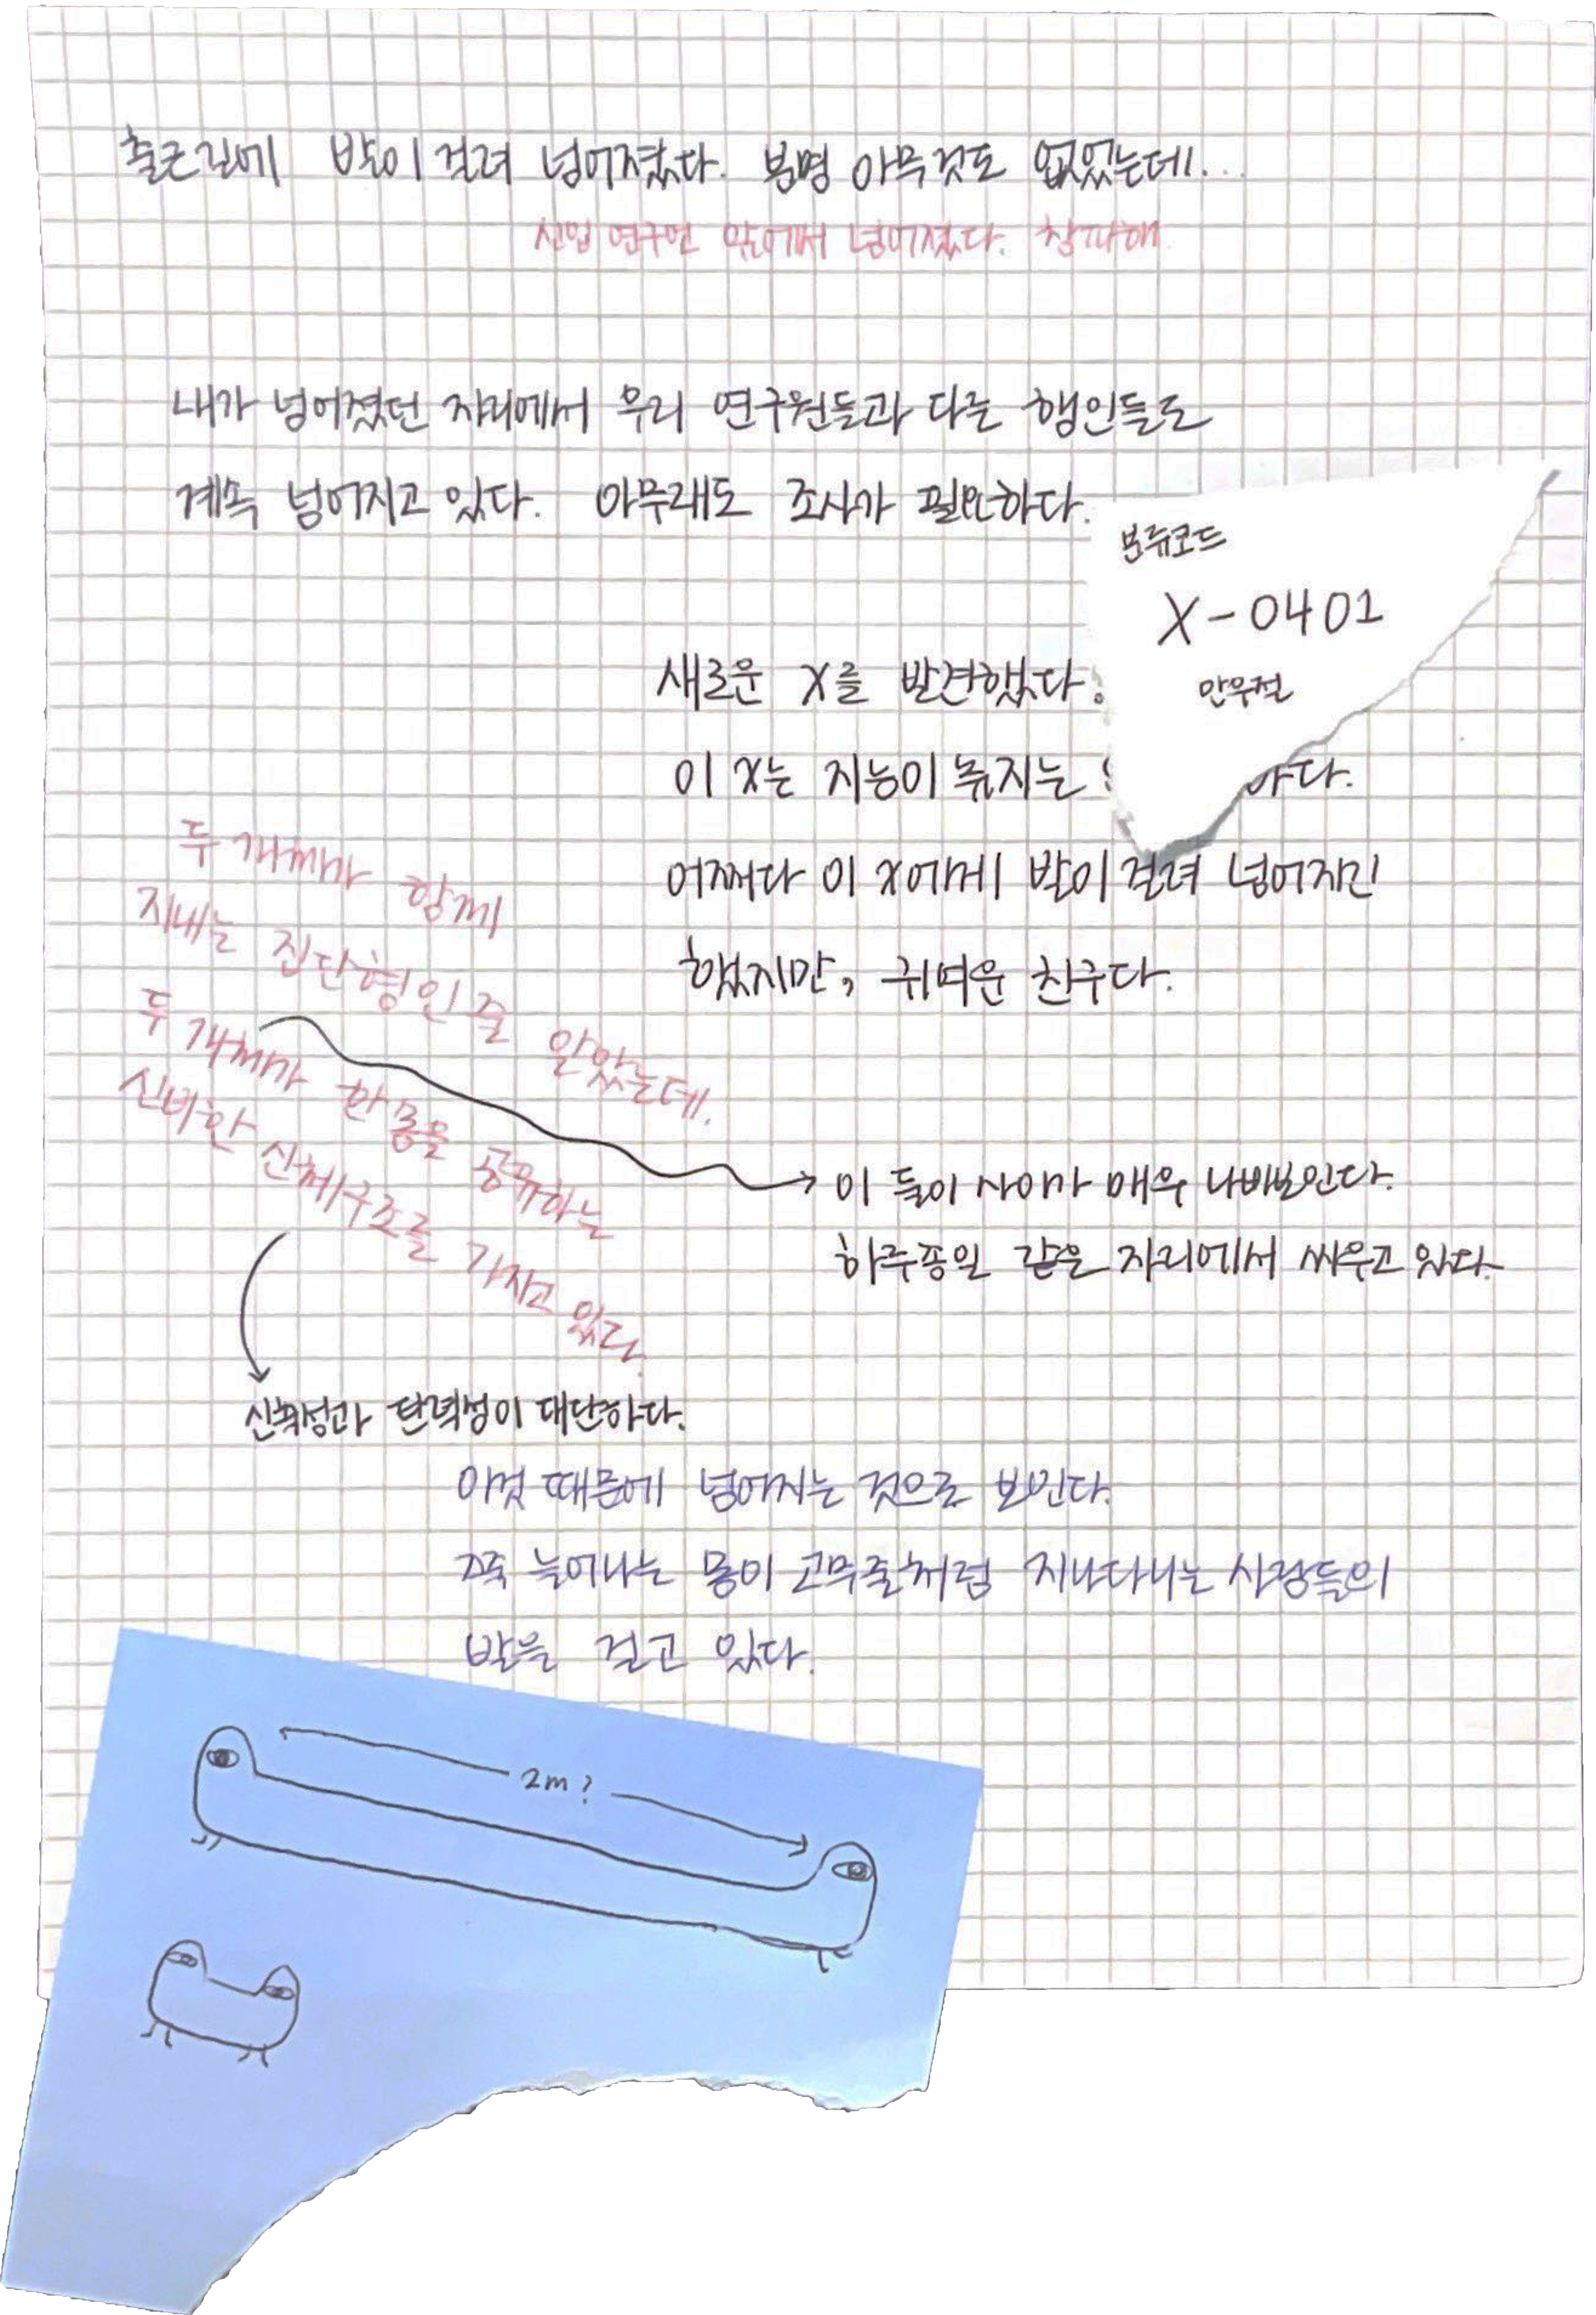 출근길에 발이 걸려 넘어졌다. 분명 아무것도 없었는데...
신입 연구원 앞에서 넘어졌다. 창피해
내가 넘어졌던 자리에서 우리 연구원들과 다른 행인들도
계속 넘어지고 있다. 아무래도 조사가 필요하다.
분류코드
X-0401
안우절
새로운 X를 발견했다.
이 X는 지능이 높지는
어쩌다 이 X에게 발이 걸려 넘어지긴
했지만, 귀여운 친구다.
두 개체가 함께
지내는 집단형인 줄 알았는데.
두 개체가 한 몸을 공유하는
신비한 신체구조를 가지고 있다.
이 둘이 사이가 매우 나빠보인다.
하루종일 같은 자리에서 싸우고 있다.
신축성과 탄력성이 대단하다.
이것 때문에 넘어지는 것으로 보인다.
쭉 늘어나는 몸이 고무줄처럼 지나다니는 사람들의
발을 걸고 있다.
2m?